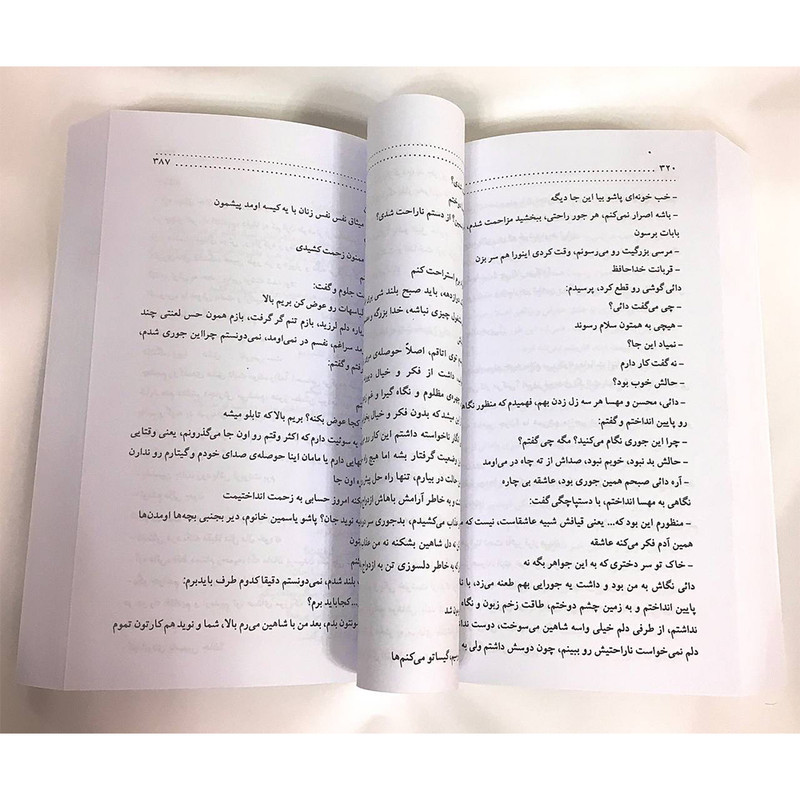 ۳۲۰
- خب خونه‌ای پاشو بیا این جا دیگه
- باشه اصرار نمی‌کنم، هر جور راحتی، ببخشید مزاحمت شدم،
بابات برسون
- مرسی بزرگیت رو می‌رسونم، وقت کردی اینورا هم سر بزن
- قربانت خداحافظ
دائی گوشی رو قطع کرد، پرسیدم:
- چی می‌گفت دائی؟
- هیچی به همتون سلام رسوند
- نمیاد این جا؟
- نه گفت کار دارم
- حالش خوب بود؟
- دائی، محسن و مهسا هر سه زل زدن بهم، فهمیدم که منظور نگاه
رو پایین انداختم و گفتم:
- چرا این جوری نگام می‌کنید؟ مگه چی گفتم؟
- حالش بد نبود، خوبم نبود، صداش از ته چاه در می‌اومد
- آره دائی صبحم همین جوری بود، عاشقه بی چاره
نگاهی به مهسا انداختم، با دستپاچگی گفت:
- منظورم این بود که... یعنی قیافش شبیه عاشقاست، نیست که
همین آدم فکر می‌کنه عاشقه
- خاک تو سر دختری که به این جواهر بگه نه
دائی نگاش به من بود و داشت یه جورایی بهم طعنه می‌زد، با
پایین انداختم و به زمین چشم دوختم، طاقت زخم زبون و نگاه
نداشتم، از طرفی دلم خیلی واسه شاهین می‌سوخت، دوست
دلم نمی‌خواست ناراحتیش رو ببینم، چون دوسش داشتم ولی به
دوختم
از دستم ناراحت شدی؟
برم استراحت کنم
دوازدهه، باید صبح بلند شی برای
چیزی نباشه، خدا بزرگه و
توی اتاقم، اصلاً حوصله‌ی
داشت از فکر و خیال
چهره‌ی مظلوم و نگاه گیرا و غم
میشد که بدون فکر و خیال
ناخواسته داشتم این کار رو
وضعیت گرفتار بشه اما هیچ
حالت در بیارم، تنها راه حل
و به خاطر آرامش باهاش
عذاب می‌کشیدم، بدجوری سر
نه دل شاهین بشکنه نه من
که به خاطر دلسوزی تن به
شد
گیساتو می‌کنم‌ها
۳۸۷
میثاق نفس نفس زنان با یه کیسه اومد پیشمون
ممنون زحمت کشیدی
جلوم و گفت:
لباسهات رو عوض کن بریم بالا
دلم لرزید، بازم تنم گر گرفت، بازم همون حس لعنتی چند
سراغم، نفسم در نمی‌اومد، نمی‌دونستم چرا این جوری شدم،
و گفتم:
کجا عوض بکنه؟ بریم بالا که تابلو میشه
یه سوئیت دارم که اکثر وقتم رو اون جا می‌گذرونم، یعنی وقتایی
دارم یا مامان اینا حوصله‌ی صدای خودم و گیتارم رو ندارن
اون جا
امروز حسابی به زحمت انداختیمت
به نوید جان؟ پاشو یاسمین خانوم، دیر بجنبی بچه‌ها اومدن‌ها
بلند شدم، نمی‌دونستم دقیقا کدوم طرف باید برم:
...کجا باید برم؟
بدم، بعد من با شاهین می‌رم بالا، شما و نوید هم کارتون تموم